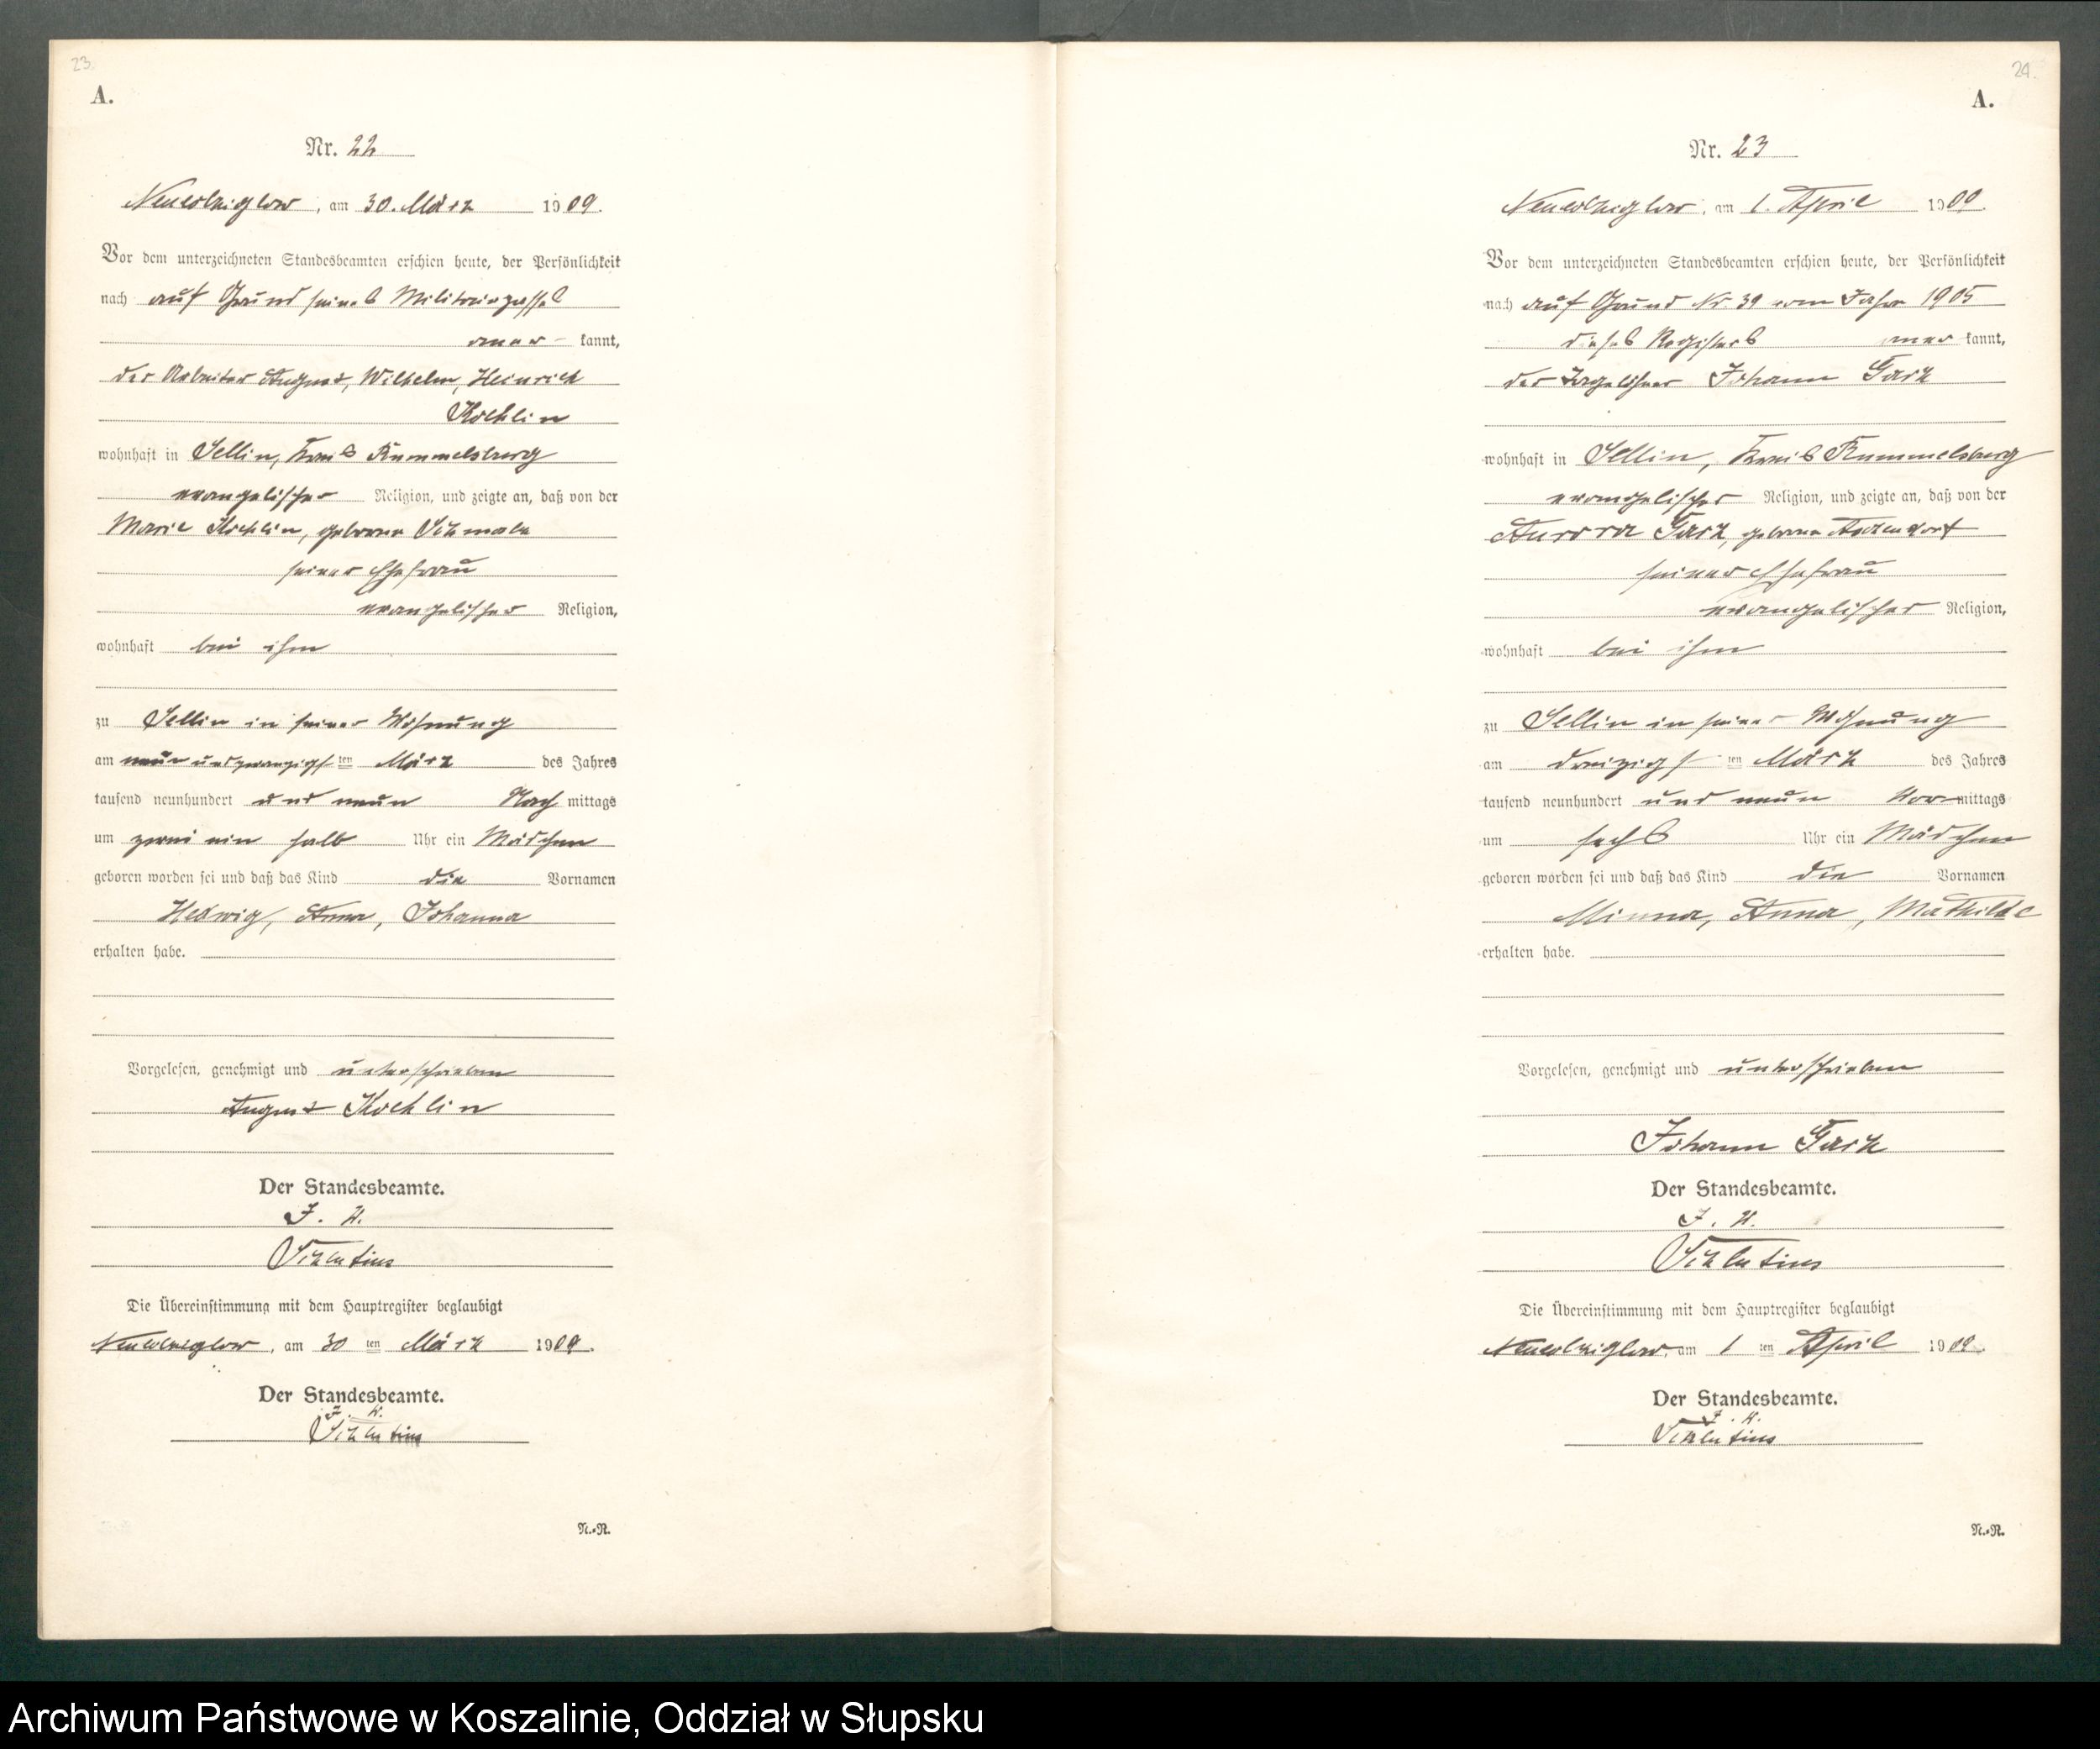 23.
A.
Nr. 22
Neukolziglow, am 30. März 1909.
Vor dem unterzeichneten Standesbeamten erschien heute, der Persönlichkeit
nach auf Grund seines Militärpasses
aner- kannt,
der Arbeiter August, Wilhelm, Heinrich
Kochlin
wohnhaft in Sellin, Kreis Rummelsburg
evangelischer Religion, und zeigte an, daß von der
Marie Kochlin, geborene
seiner Ehefrau
evangelischer Religion,
wohnhaft bei ihm
zu Sellin in seiner Wohnung
am neunundzwanzigsten März des Jahres
tausend neunhundert und neun Nach mittags
um zwei ein halb Uhr ein Mädchen
geboren worden sei und daß das Kind die Vornamen
Hedwig, Anna, Johanna
erhalten habe.
Vorgelesen, genehmigt und unterschrieben
August Kochlin
Der Standesbeamte.
J. V.
Die Übereinstimmung mit dem Hauptregister beglaubigt
Neukolziglow, am 30 ten März 1909.
Der Standesbeamte.
J. V.
N.=R.
24.
A.
Nr. 23
Neukolziglow, am 1. April 1909.
Vor dem unterzeichneten Standesbeamten erschien heute, der Persönlichkeit
nach auf Grund Nr. 39 vom Jahre 1905
dieses Registers aner kannt,
der Tagelöhner Johann Garz
wohnhaft in Sellin, Kreis Rummelsburg
evangelischer Religion, und zeigte an, daß von der
Aurora Garz, geborene
seiner Ehefrau
evangelischer Religion,
wohnhaft bei ihm
zu Sellin in seiner Wohnung
am dreizigsten März des Jahres
tausend neunhundert und neun Vor mittags
um sechs Uhr ein Mädchen
geboren worden sei und daß das Kind die Vornamen
Minna, Anna, Mathilde
erhalten habe.
Vorgelesen, genehmigt und unterschrieben
Johann Garz
Der Standesbeamte.
J. V.
Die Übereinstimmung mit dem Hauptregister beglaubigt
Neukolziglow, am 1 ten April 1909.
Der Standesbeamte.
J. V.
N.=R.
Archiwum Państwowe w Koszalinie, Oddział w Słupsku